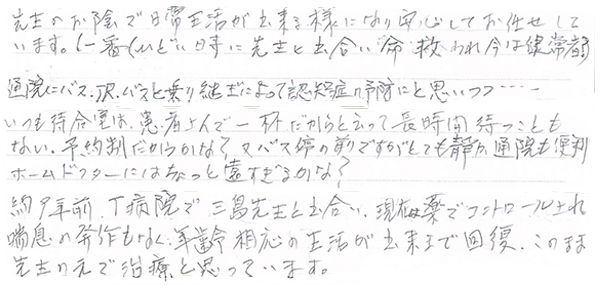 先生のお陰で日常生活が出来る様になり安心してお任せして
います。(一番ひどい時に先生と出合い命救われ今は健常者)
通院にバス、JR、バスと乗り継ぎによって認知症の予防にと思いつつ……
いつも待合室は、患者さんで一杯だからと云って長時間待つことも
ない。予約制だからかな? 又バス停の前ですがとても静か 通院も便利
ホームドクターにはちょっと遠すぎるかな?
約9年前、T病院で三島先生と出合い、現在は薬でコントロールされ
喘息の発作もなく、年齢相応の生活が出来まで回復、このまま
先生の元で治療と思っています。